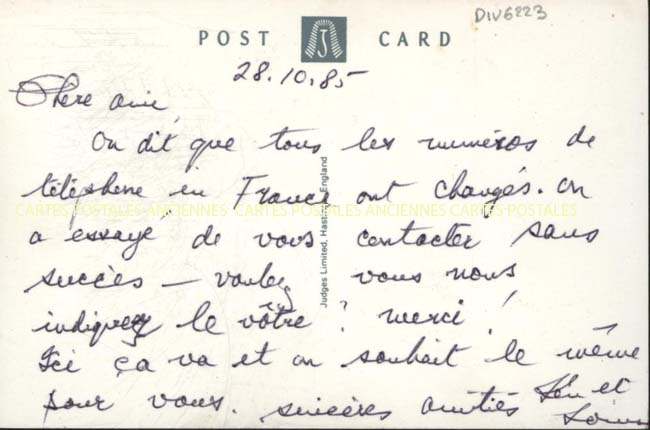 DIV6223
POST CARD
28.10.85
Chere amie,
On dit que tous les numéros de
téléphone en France ont changés. on
CARTES POSTALES ANCIENNES CARTES POSTALES ANCIENNES CARTES POSTALES
a essayé de vous contacter sans
succès — voulez vous nous
indiquez le vôtre? merci!
Ici ça va et on souhait le même
pour vous. sincères amitiés
et
Judges Limited, Hastings, England